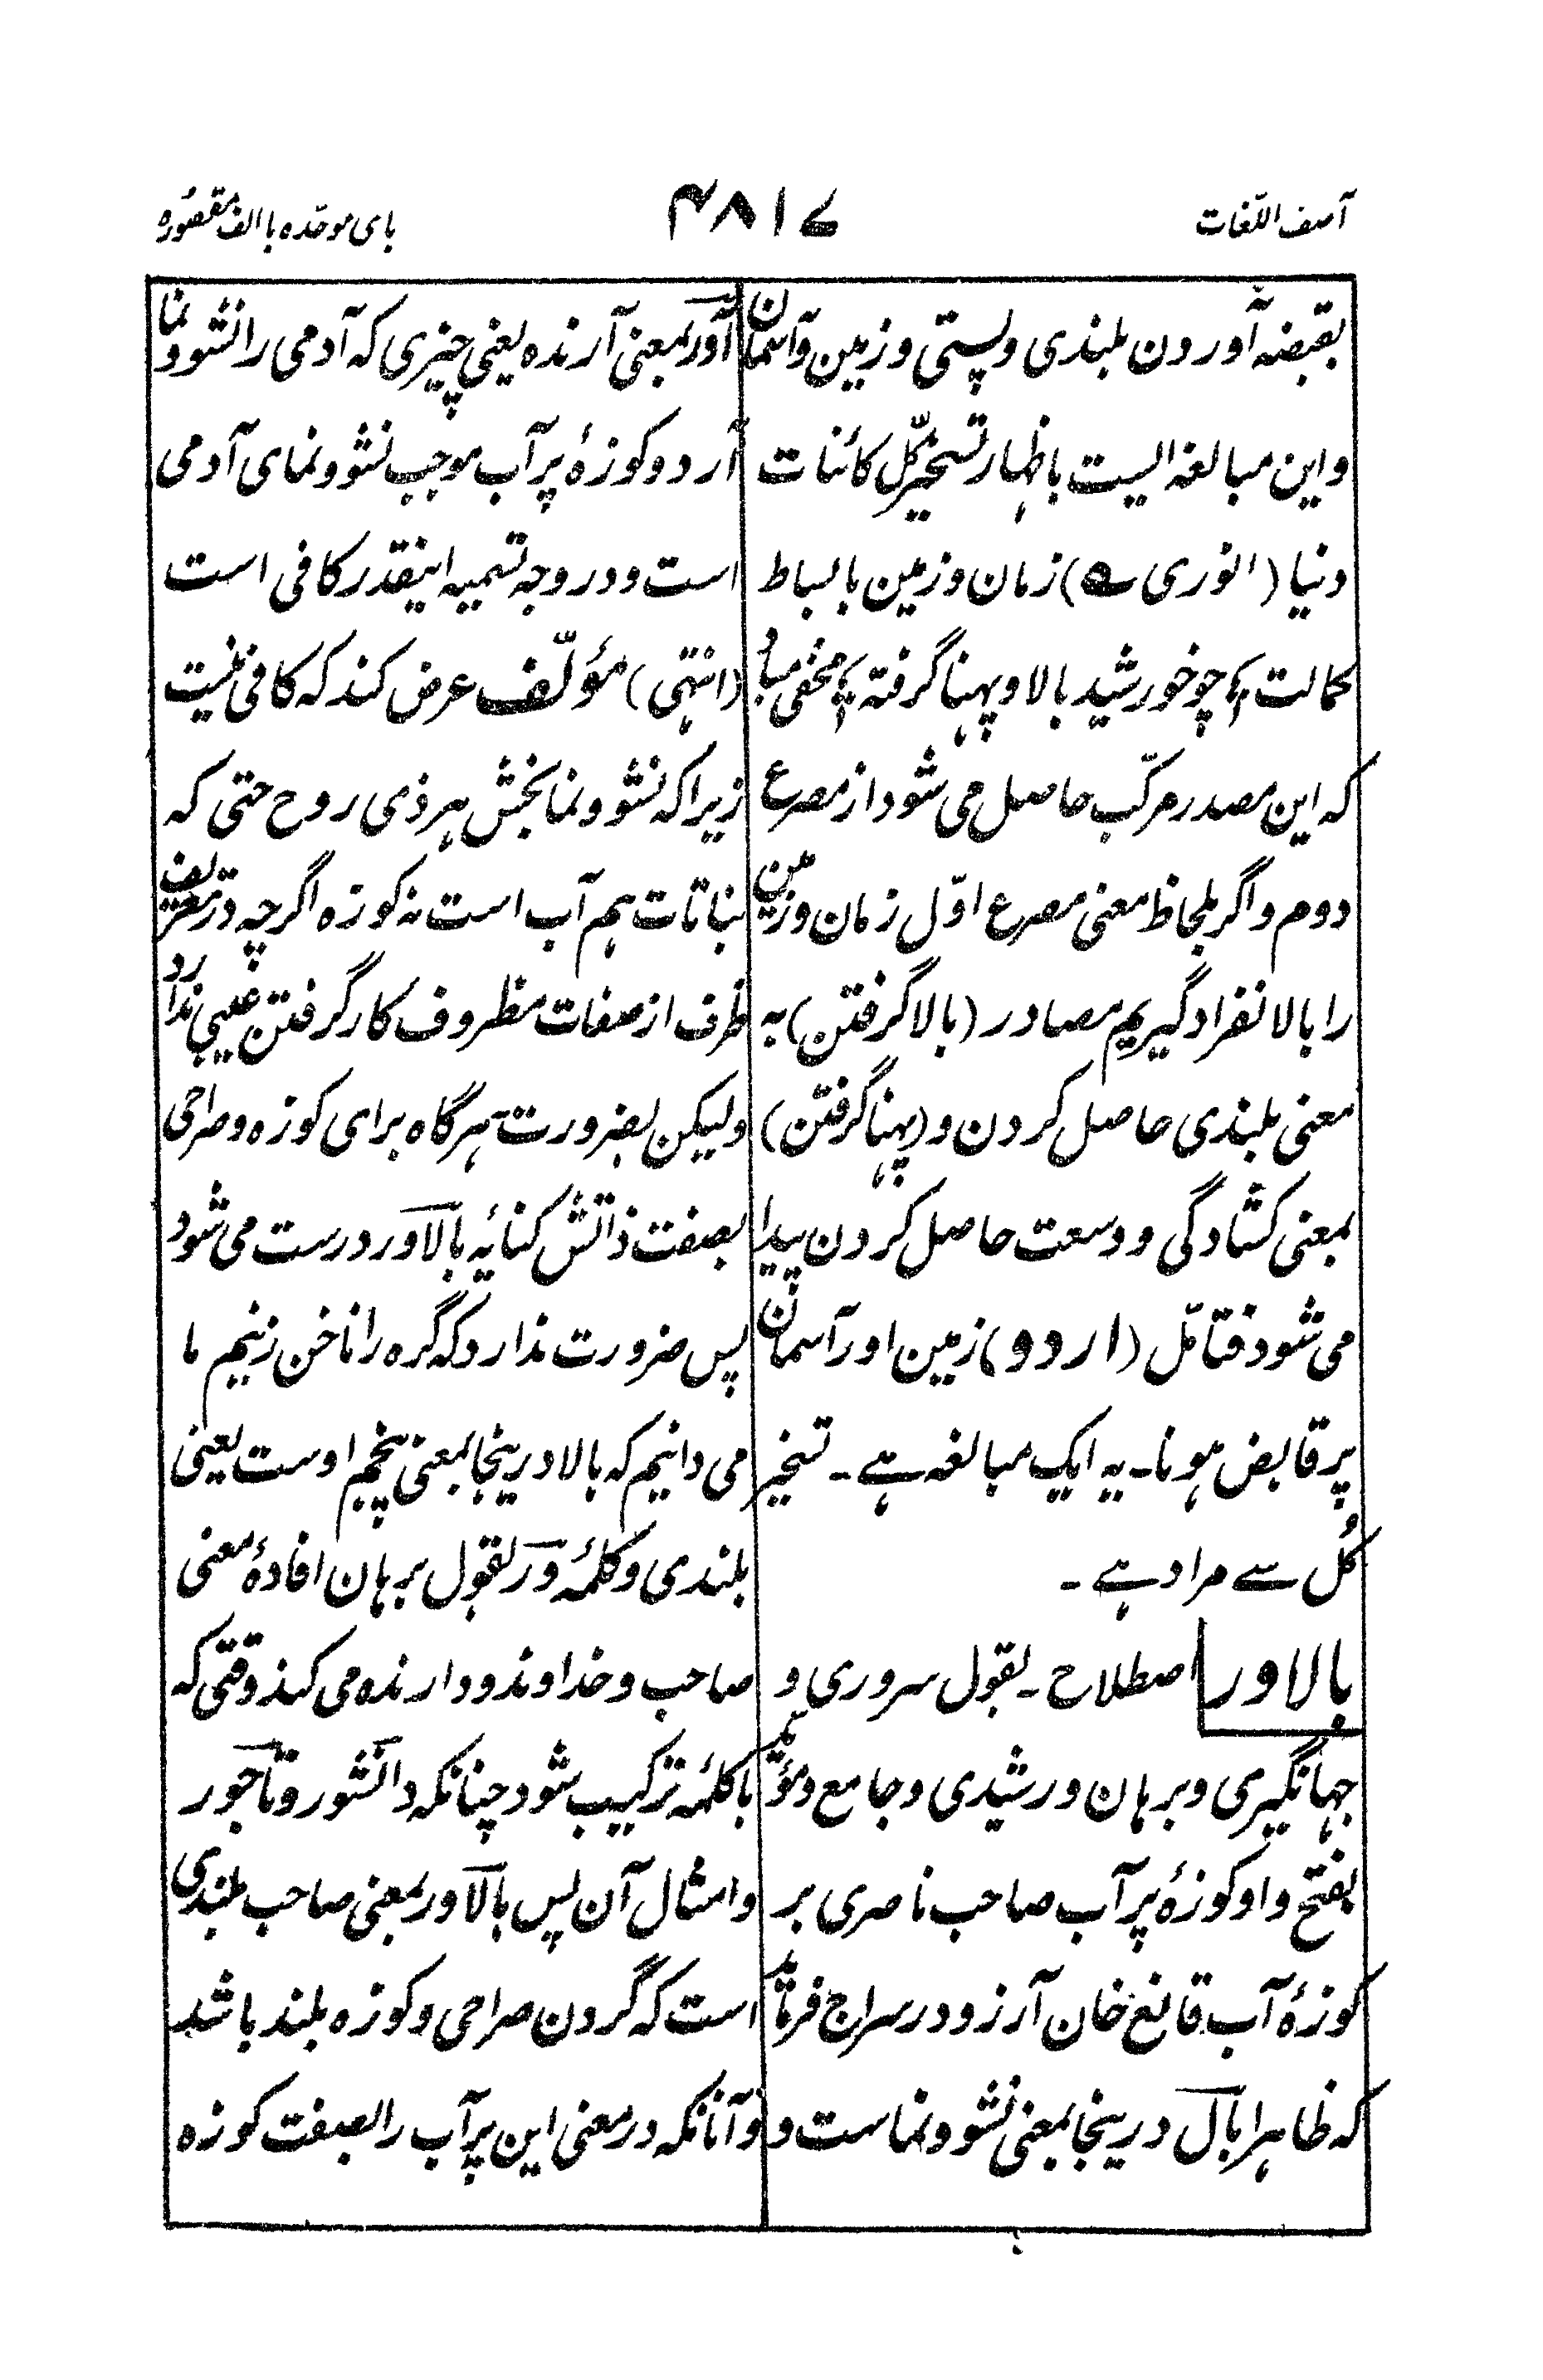 آصف اللّغات
۴۸۱۷
بای موحّده با الف مقصوره
بقبضه آوردن بلندی و پستی و زمین و آسمان
و این مبالغه ایست باظهار تسخیر کُلّ کائنات
دنیا (انوری ے) زمان و زمین با بساط
کمالت ؛ چو خورشید بالا و پهنا گرفته ؛ مخفی مباد
که این مصدر مرکّب حاصل می شود از مصرع
دوم و اگر بلحاظ معنی مصرع اوّل زمان و زمین
را بالانفراد گیریم مصادر (بالا گرفتن) به
معنی بلندی حاصل کردن و (پهنا گرفتن)
بمعنی کشادگی و وسعت حاصل کردن پیدا
می شود فتامّل (اردو) زمین اور آسمان
پر قابض ہونا۔ یہ ایک مبالغہ ہے۔ تسخیر
کُل سے مراد ہے۔
بالاور اصطلاح۔ بقول سروری و
جهانگیری و برهان و رشیدی و جامع و مؤیّد
بفتح واو کوزهٔ پر آب صاحب ناصری بر
کوزهٔ آب قانع خان آرزو در سراج فرماید
که ظاهرا بال درینجا بمعنی نشو و نماست و
آور بمعنی آرنده یعنی چیزی که آدمی را نشو و نما
آرد و کوزهٔ پر آب موجب نشو و نمای آدمی
است و در وجه تسمیه اینقدر کافی است
(انتهی) مؤلّف عرض کند که کافی نیست
زیرا که نشو و نما بخش هر ذی روح حتی که
نباتات هم آب است نه کوزه اگرچه در تعریف
ظرف از صفات مظروف کار گرفتن عیبی ندارد
ولیکن بضرورت هرگاه برای کوزه و صراحی
بصفت ذاتش کنایه بالاور درست می شود
پس ضرورت ندارد که گره را ناخن زنیم ما
می دانیم که بالا درینجا بمعنی پنجم اوست یعنی
بلندی و کلمهٔ ور بقول برهان افادهٔ معنی
صاحب و خداوند و دارنده می کند وقتی که
با کلمهٔ ترکیب شود چنانکه دانشور و تاجور
و امثال آن پس بالاور بمعنی صاحب بلندی
است که گردن صراحی و کوزه بلند باشد
و آنانکه در معنی این پر آب را بصفت کوزه